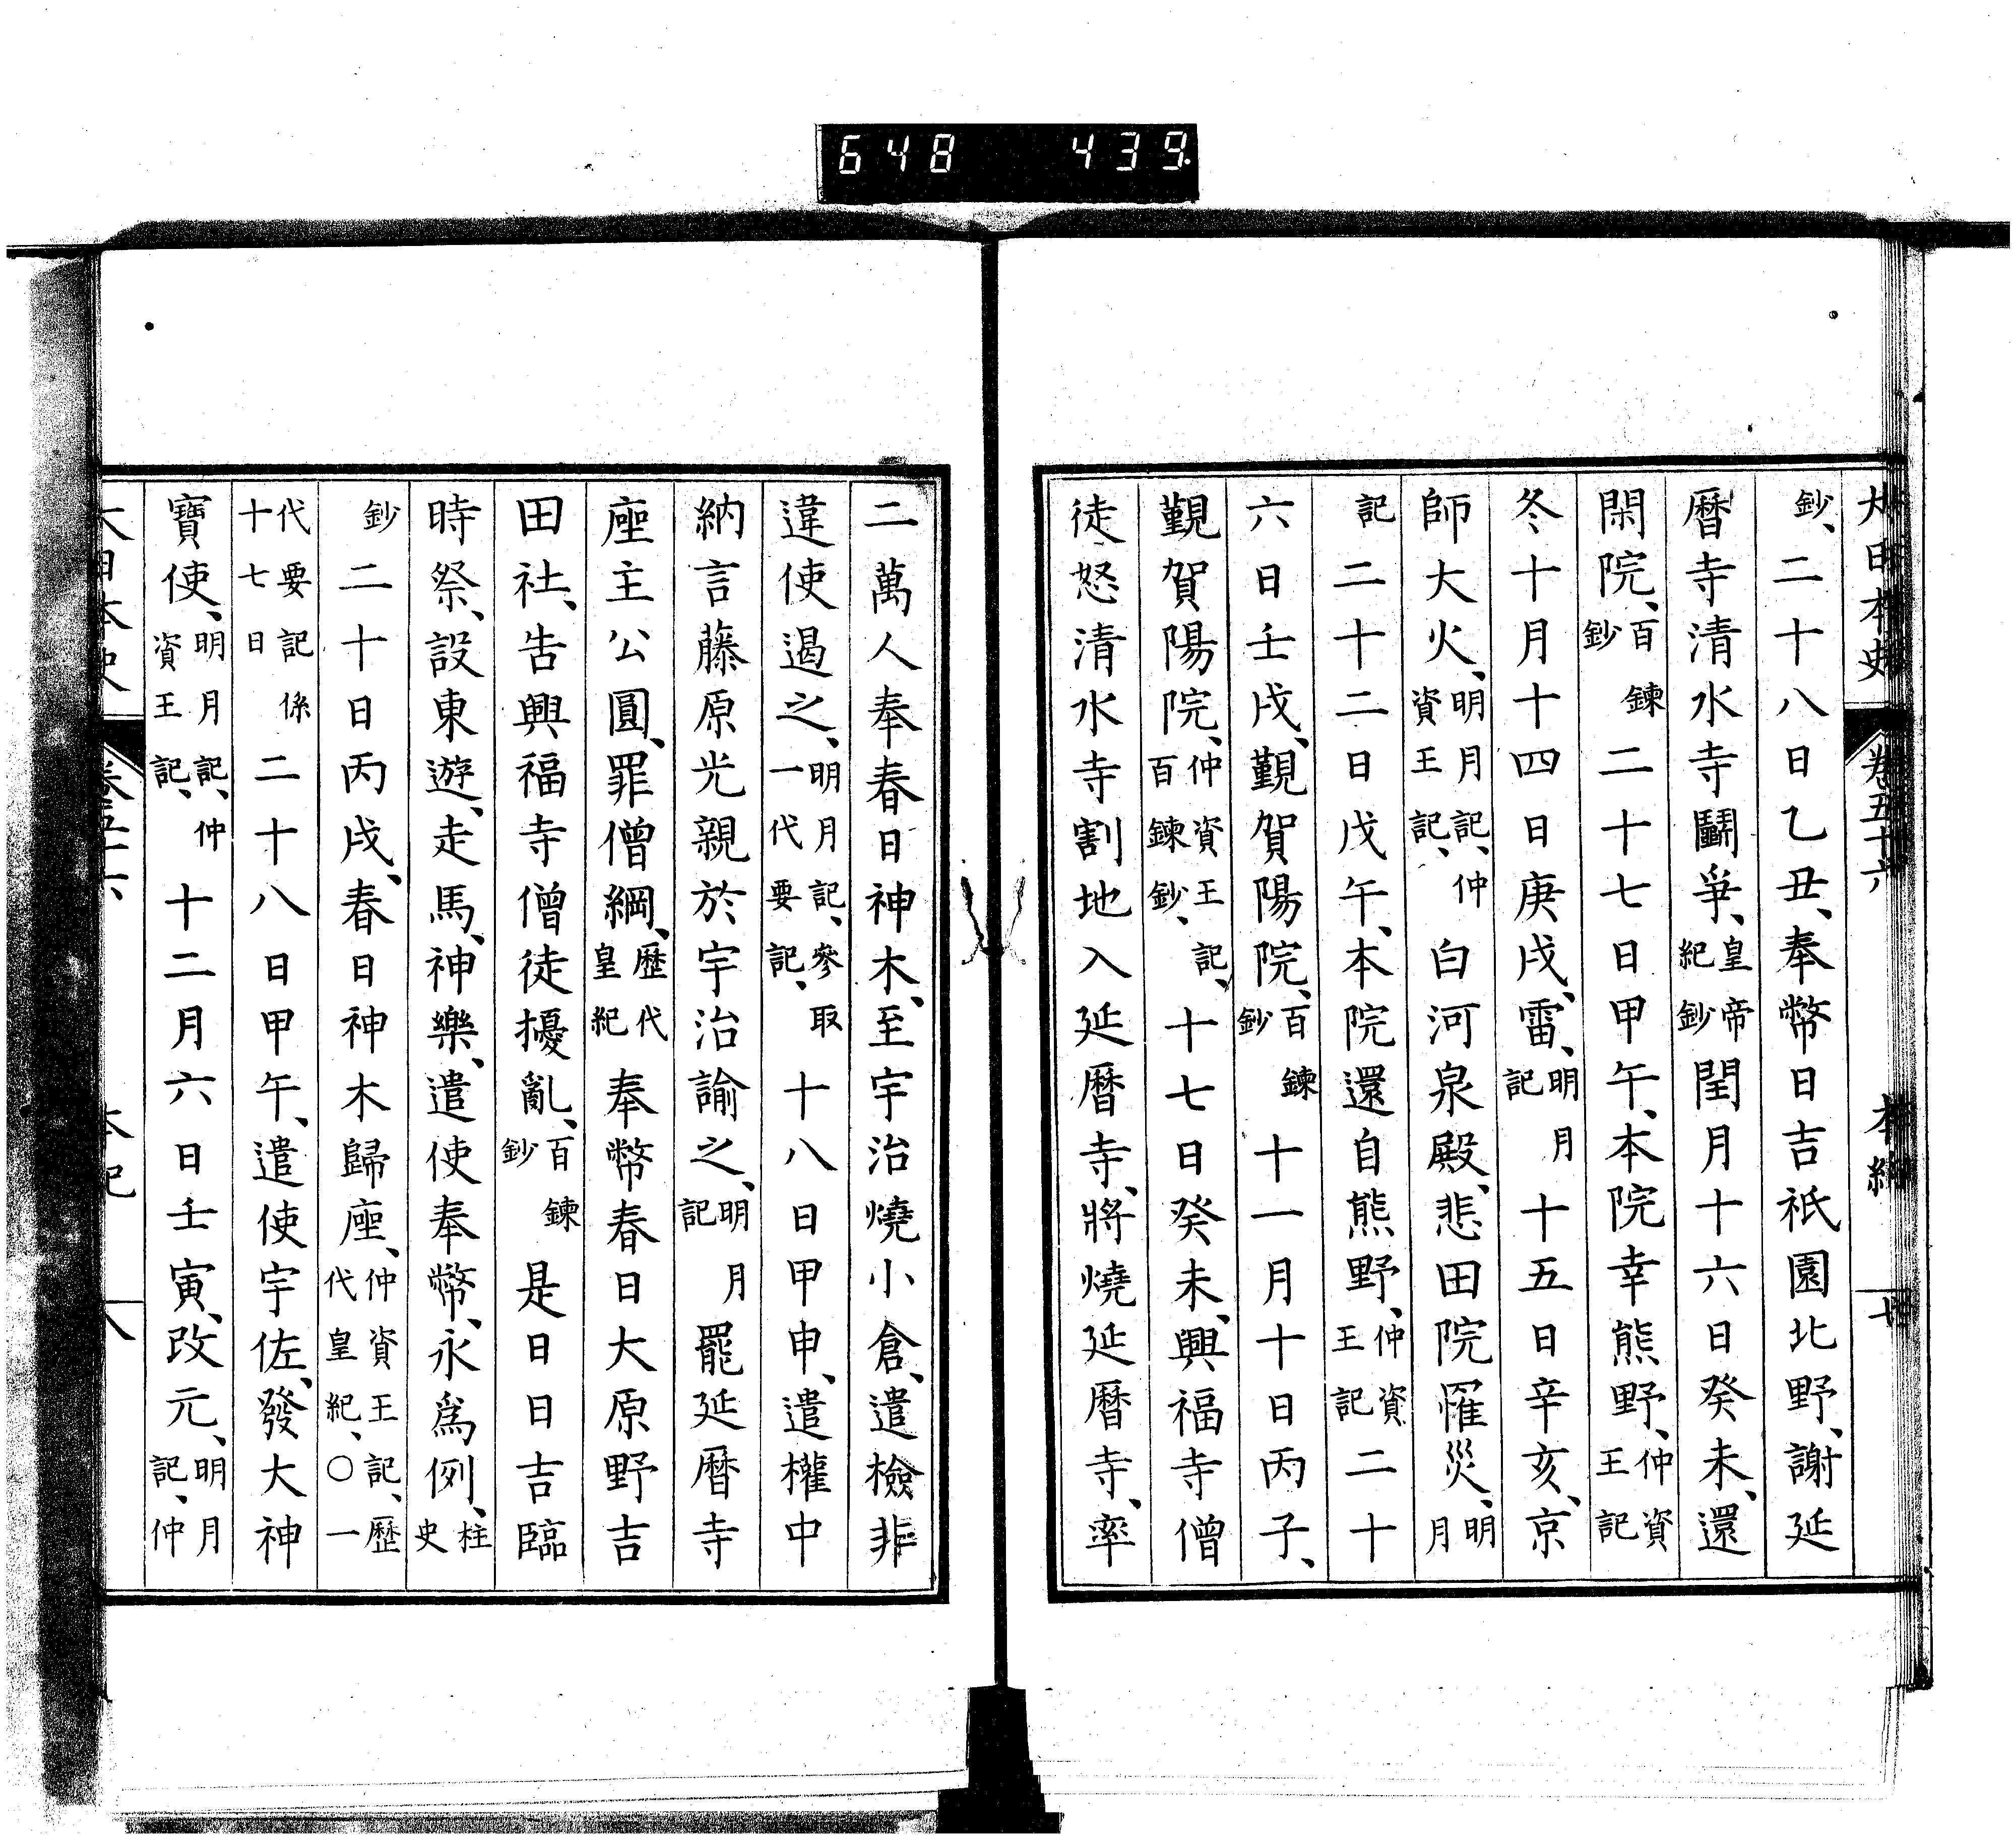 648 439
大日本史 卷五十六 本紀 七
鈔、二十八日乙丑、奉幣日吉祇園北野、謝延
曆寺清水寺鬭爭、皇帝紀鈔閏月十六日癸未、還
閑院、百鍊鈔二十七日甲午、本院幸熊野、仲資王記
冬十月十四日庚戌、雷、明月記十五日辛亥、京
師大火、明月記、仲資王記、白河泉殿、悲田院罹災、明月
記二十二日戊午、本院還自熊野、仲資王記二十
六日壬戌、覲賀陽院、百鍊鈔十一月十日丙子、
覲賀陽院、仲資王記、百鍊鈔、十七日癸未、興福寺僧
徒怒清水寺割地入延曆寺、將燒延曆寺、率
二萬人奉春日神木、至宇治燒小倉、遣檢非
違使遏之、明月記、參取一代要記、十八日甲申、遣權中
納言藤原光親於宇治諭之、明月記罷延曆寺
座主公圓、罪僧綱、歷代皇紀奉幣春日大原野吉
田社、告興福寺僧徒擾亂、百鍊鈔是日日吉臨
時祭、設東遊、走馬、神樂、遣使奉幣、永爲例、柱史
鈔二十日丙戌、春日神木歸座、仲資王記、歷代皇紀、○一
代要記係十七日二十八日甲午、遣使宇佐、發大神
寶使、明月記、仲資王記、十二月六日壬寅、改元、明月記、仲
大日本史 卷五十六 本紀 八